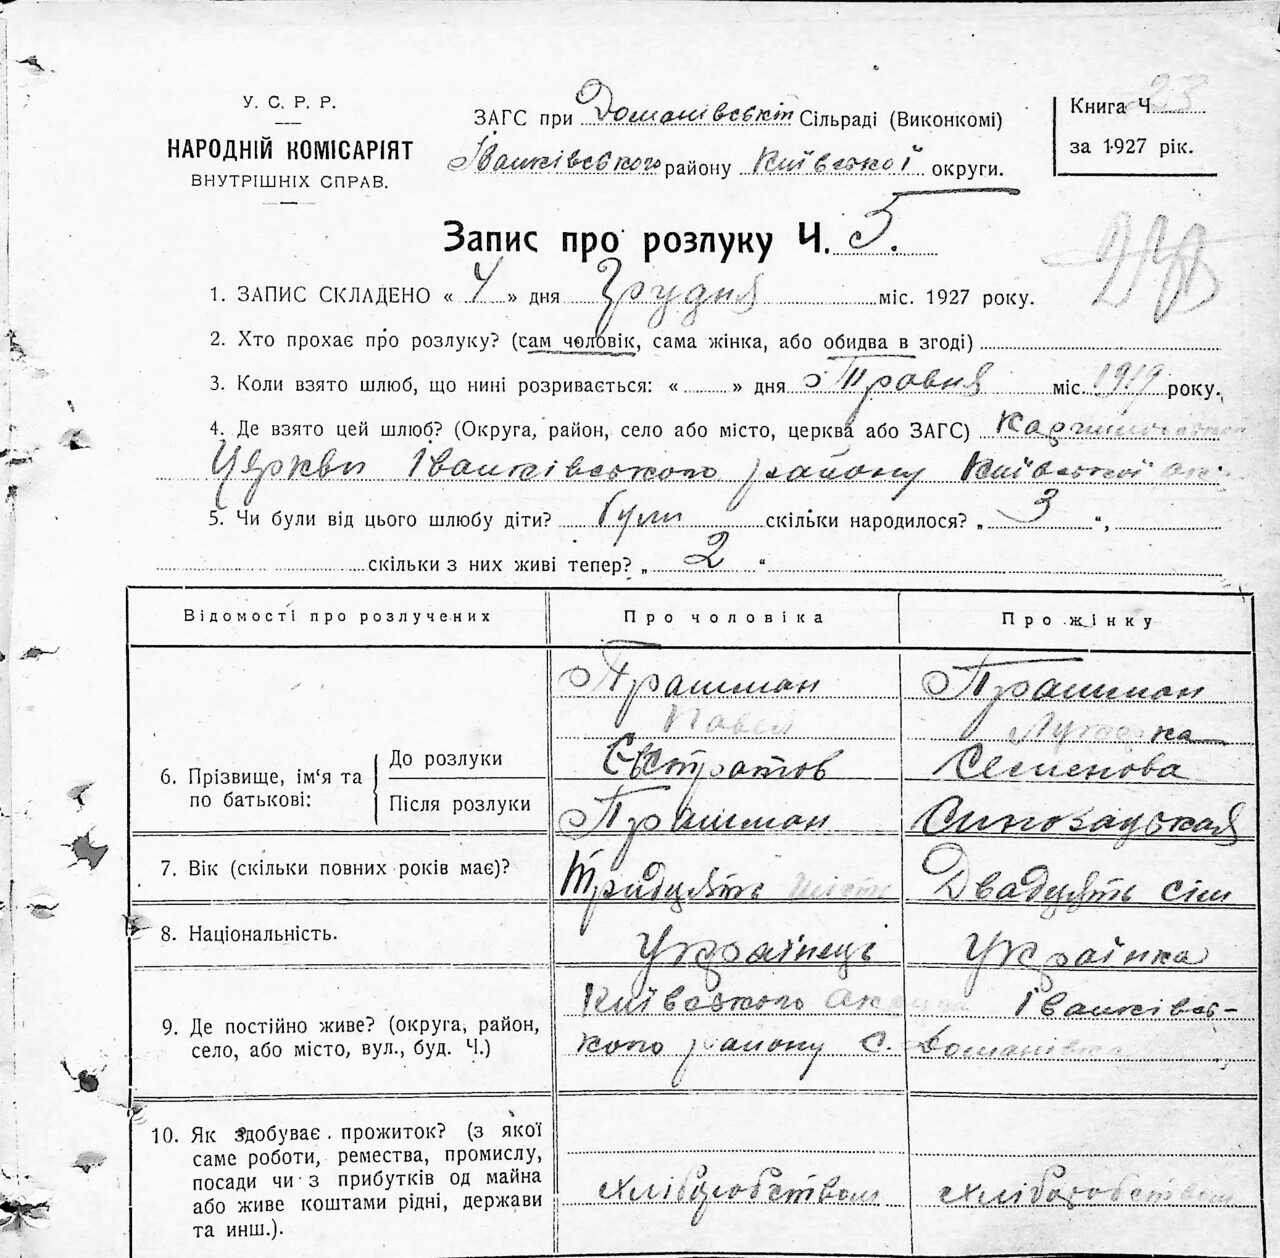 У. С. Р. Р.
НАРОДНІЙ КОМІСАРІЯТ
ВНУТРІШНІХ СПРАВ.
ЗАГС при Доманівській Сільраді (Виконкомі)
Іванківського району Київської округи.
Книга Ч 23
за 1927 рік.
Запис про розлуку Ч. 5.
1. ЗАПИС СКЛАДЕНО « 4 » дня Грудня міс. 1927 року.
2. Хто прохає про розлуку? (сам чоловік, сама жінка, або обидва в згоді)
3. Коли взято шлюб, що нині розривається: « » дня Травня міс. 1919 року.
4. Де взято цей шлюб? (Округа, район, село або місто, церква або ЗАГС)
Церкви Іванківського району Київської
5. Чи були від цього шлюбу діти? були скільки народилося? „ 3 “,
скільки з них живі тепер? „ 2 “
Відомості про розлучених Про чоловіка Про жінку
6. Прізвище, ім‘я та по батькові:
До розлуки
Після розлуки
Трашман
Павел
Евстратов
Трашман
Трашман
Семенова
7. Вік (скільки повних років має)? Тридцять шість Двадцять сім
8. Національність. Українець Українка
9. Де постійно живе? (округа, район,
село, або місто, вул., буд. Ч.)
Київського Іванківсь-
кого району С. Доманівка
10. Як здобуває прожиток? (з якої
саме роботи, ремества, промислу,
посади чи з прибутків од майна
або живе коштами рідні, держави
та инш.).
хліборобством хліборобством